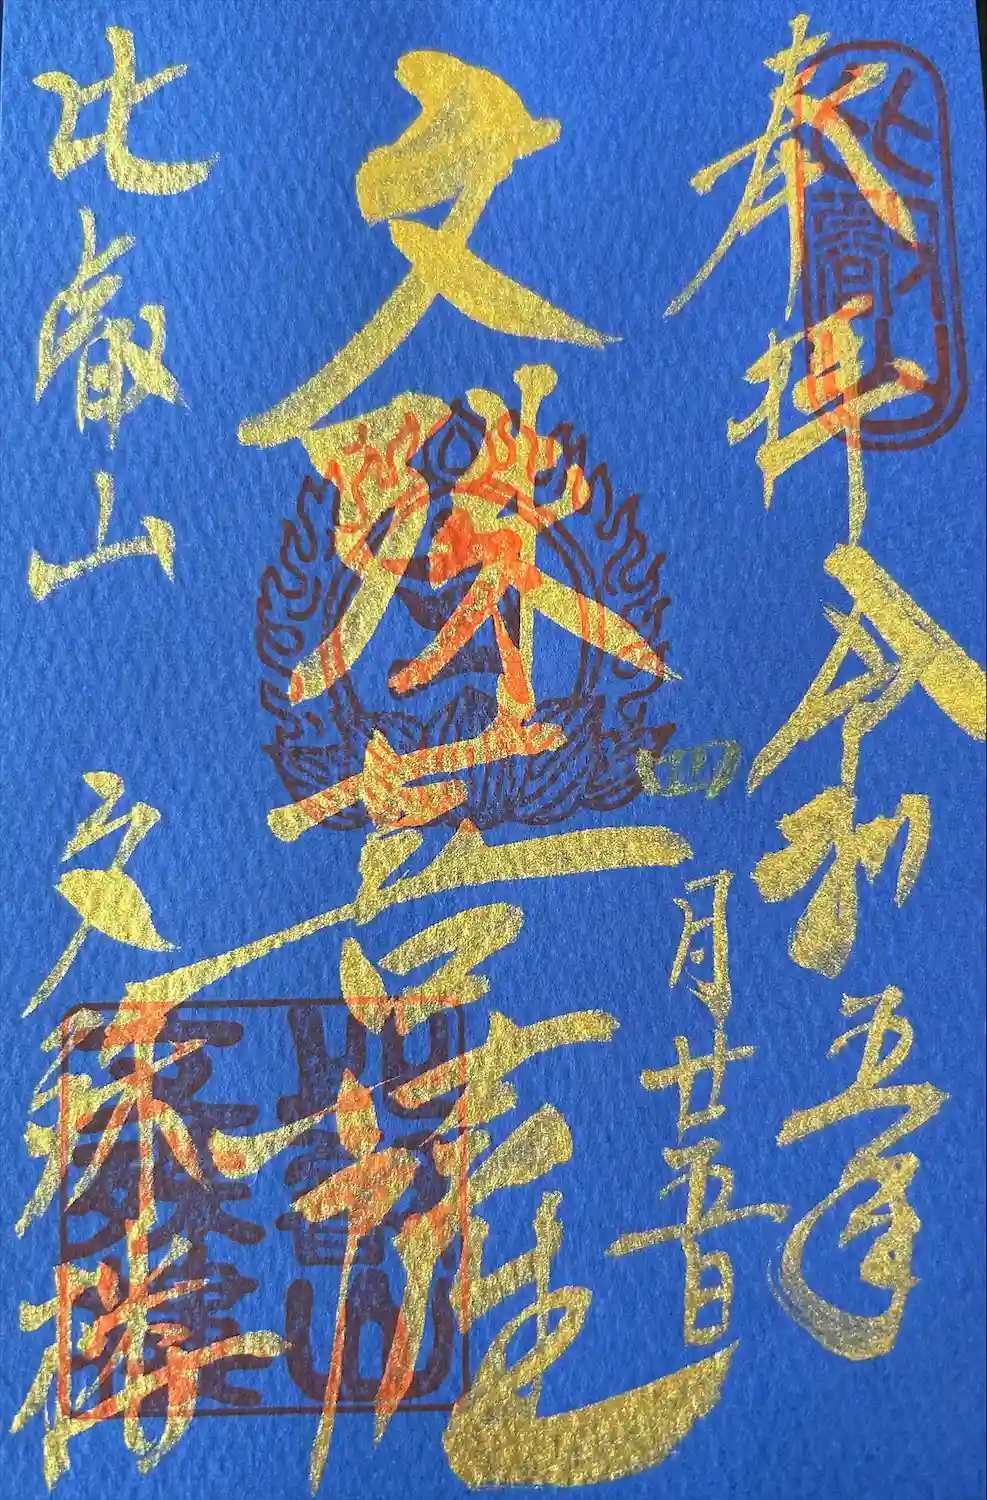 奉拝 令和五年
月廿五日
文殊菩薩
比叡山 文殊楼
比叡山
比叡山
文殊楼